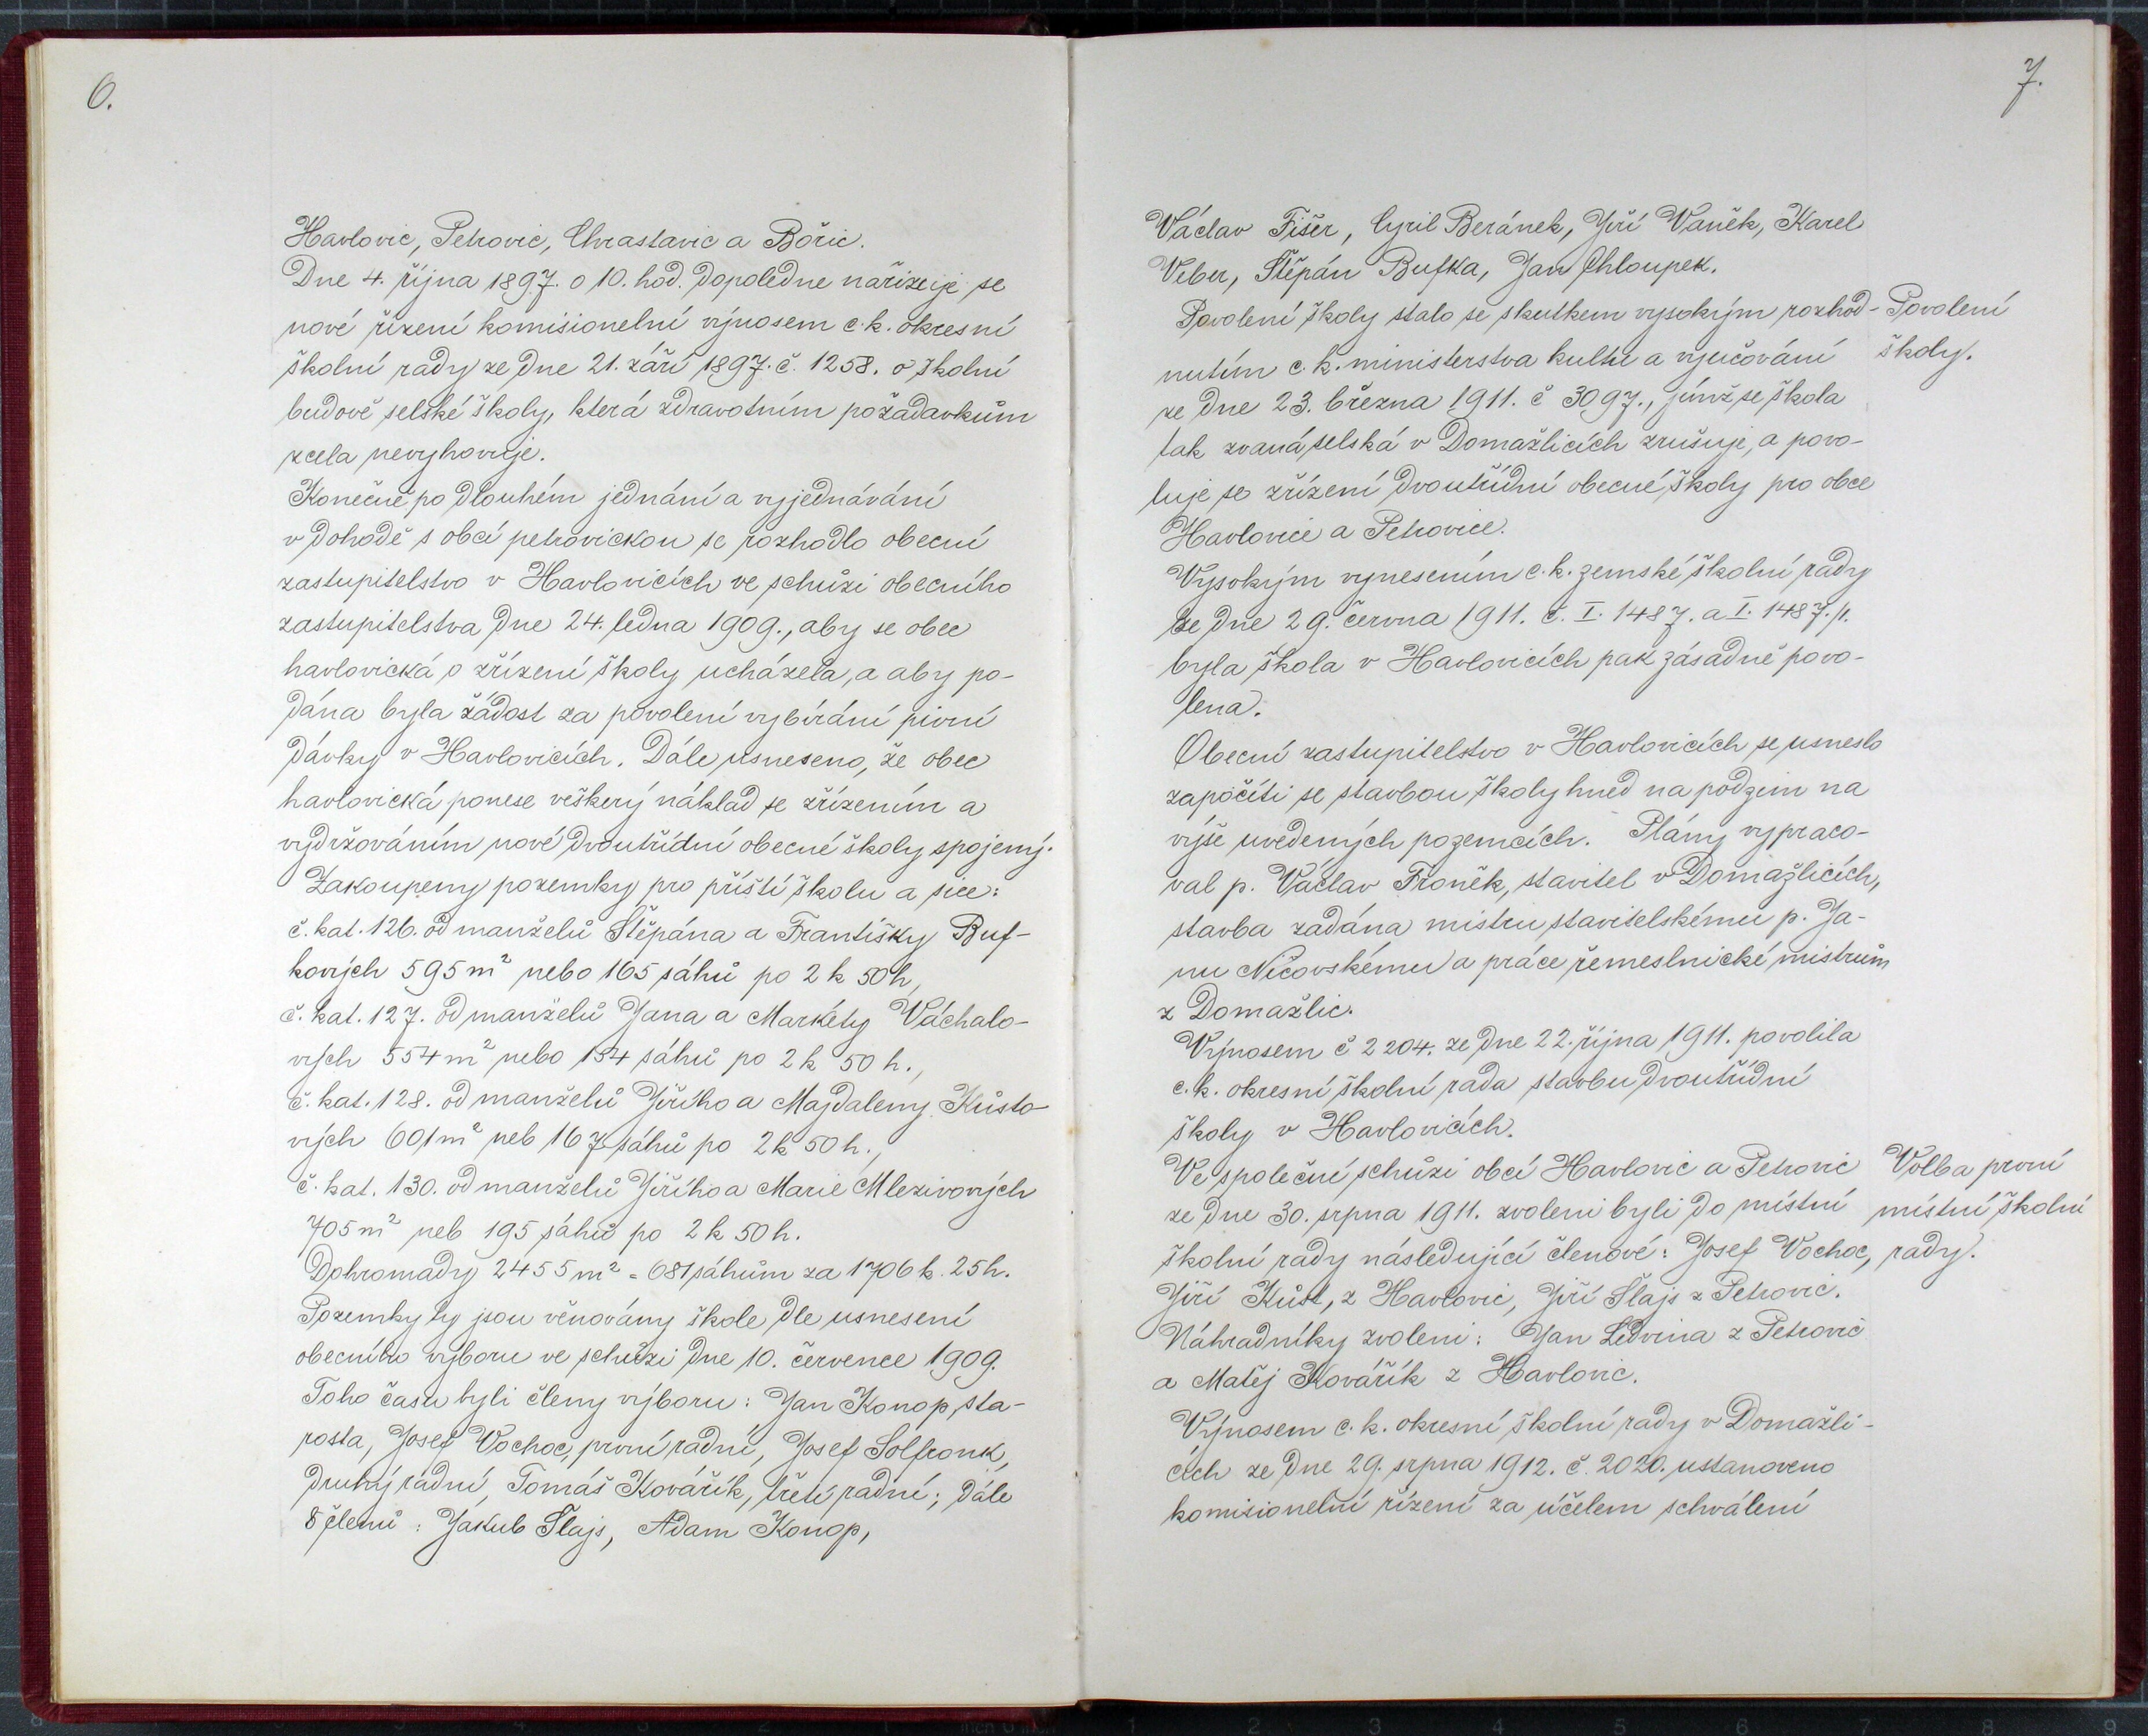 6.
Havlovic, Petrovic, Chrastavic a Bořic.
Dne 4. října 1897. o 10. hod. dopoledne nařizuje se
nové řízení komisionelní výnosem c. k. okresní
školní rady ze dne 21. září 1897. č. 1258. o školní
budově selské školy, která zdravotním požadavkům
zcela nevyhovuje.
Konečně po dlouhém jednání a vyjednávání
v dohodě s obcí petrovickou se rozhodlo obecní
zastupitelstvo v Havlovicích ve schůzi obecního
zastupitelstva dne 24. ledna 1909., aby se obec
havlovická o zřízení školy ucházela, a aby po-
dána byla žádost za povolení vybírání pivní
dávky v Havlovicích. Dále usneseno, že obec
havlovická ponese veškerý náklad se zřízením a
vydržováním nové dvoutřídní obecné školy spojený.
Zakoupeny pozemky pro příští školu a sice:
č. kat. 126. od manželů Štěpána a Františky Buf-
kových 595 m² nebo 165 sáhů po 2 k 50 h,
č. kat. 127. od manželů Jana a Markéty Váchalo-
vých 554 m² nebo 154 sáhů po 2 k 50 h.,
č. kat. 128. od manželů Jiřího a Majdaleny Kůsto-
vých 601 m² neb 167 sáhů po 2 k 50 h.,
č. kat. 130. od manželů Jiřího a Marie Mlezivových
705 m² neb 195 sáhů po 2 k 50 h.
Dohromady 2455 m² = 681 sáhům za 1706 k. 25 h.
Pozemky ty jsou věnovány škole dle usnesení
obecního výboru ve schůzi dne 10. července 1909.
Toho času byli členy výboru: Jan Konop, sta-
rosta, Josef Vochoc, první radní, Josef Solfronk,
druhý radní, Tomáš Kovářík, třetí radní; dále
8 členů: Jakub Šlajs, Adam Konop,
7.
Václav Fišer, Cyril Beránek, Jiří Vaněk, Karel
Veber, Štěpán Bufka, Jan Chloupek.
Povolení školy stalo se skutkem vysokým rozhod- Povolení
nutím c. k. ministerstva kultu a vyučování školy.
ze dne 23. března 1911. č 3097., jímž se škola
tak zvaná selská v Domažlicích zrušuje, a povo-
luje se zřízení dvoutřídní obecné školy pro obce
Havlovice a Petrovice.
Vysokým vynesením c. k. zemské školní rady
ze dne 29. června 1911. č. I. 1487. a I. 1487./1.
byla škola v Havlovicích pak zásadně povo-
lena.
Obecní zastupitelstvo v Havlovicích se usneslo
započíti se stavbou školy hned na podzim na
výše uvedených pozemcích. Plány vypraco-
val p. Václav Froněk, stavitel v Domažlicích,
stavba zadána mistru stavitelskému p. Ja-
nu Ničovskému a práce řemeslnické mistrům
z Domažlic.
Výnosem č 2204. ze dne 22. října 1911. povolila
c. k. okresní školní rada stavbu dvoutřídní
školy v Havlovicích.
Ve společné schůzi obcí Havlovic a Petrovic Volba první
ze dne 30. srpna 1911. zvoleni byli do místní místní školní
školní rady následující členové: Josef Vochoc, rady.
Jiří Kůst, z Havlovic, Jiří Šlajs z Petrovic.
Náhradníky zvoleni: Jan Ledvina z Petrovic
a Matěj Kovářík z Havlovic.
Výnosem c. k. okresní školní rady v Domažli-
cích ze dne 29. srpna 1912. č. 2020. ustanoveno
komisionelní řízení za účelem schválení